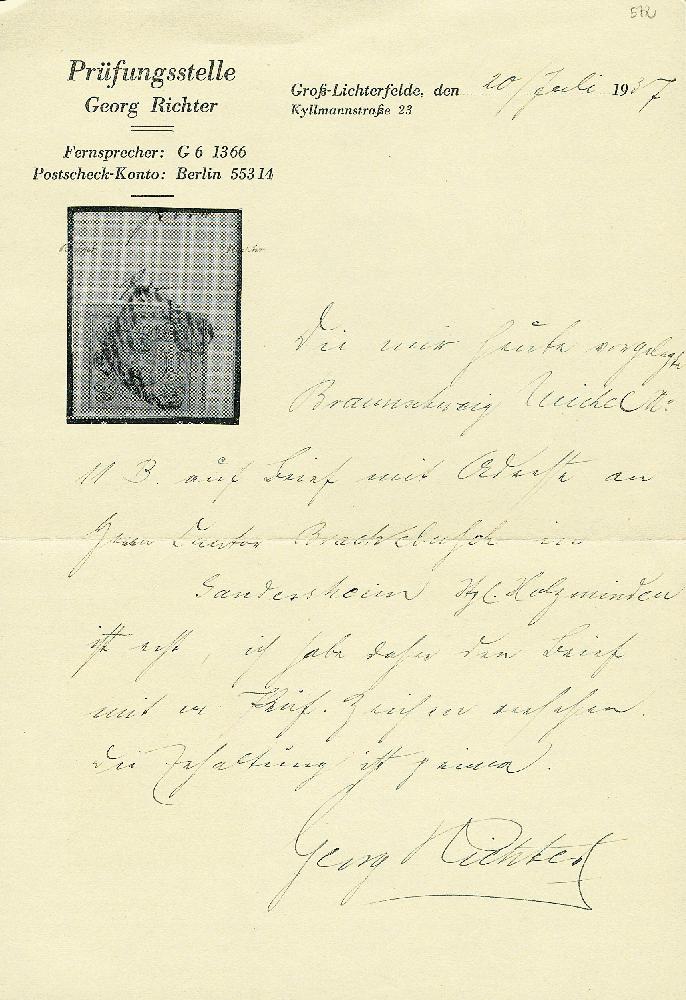 572
Prüfungsstelle
Georg Richter
Fernsprecher: G 6 1366
Postscheck-Konto: Berlin 55314
Groß-Lichterfelde, den 20/Juli 1937
Kyllmannstraße 23
Die mir heute vorgelegte
Braunschweig Michel No
11 B. auf Brief mit Adresse an
Herrn Doctor Brackebusch in
Gandersheim Holzminden
ist echt, ich habe daher den Brief
mit m Prüf. Zeichen versehen.
Die Erhaltung ist prima.
Georg Richter